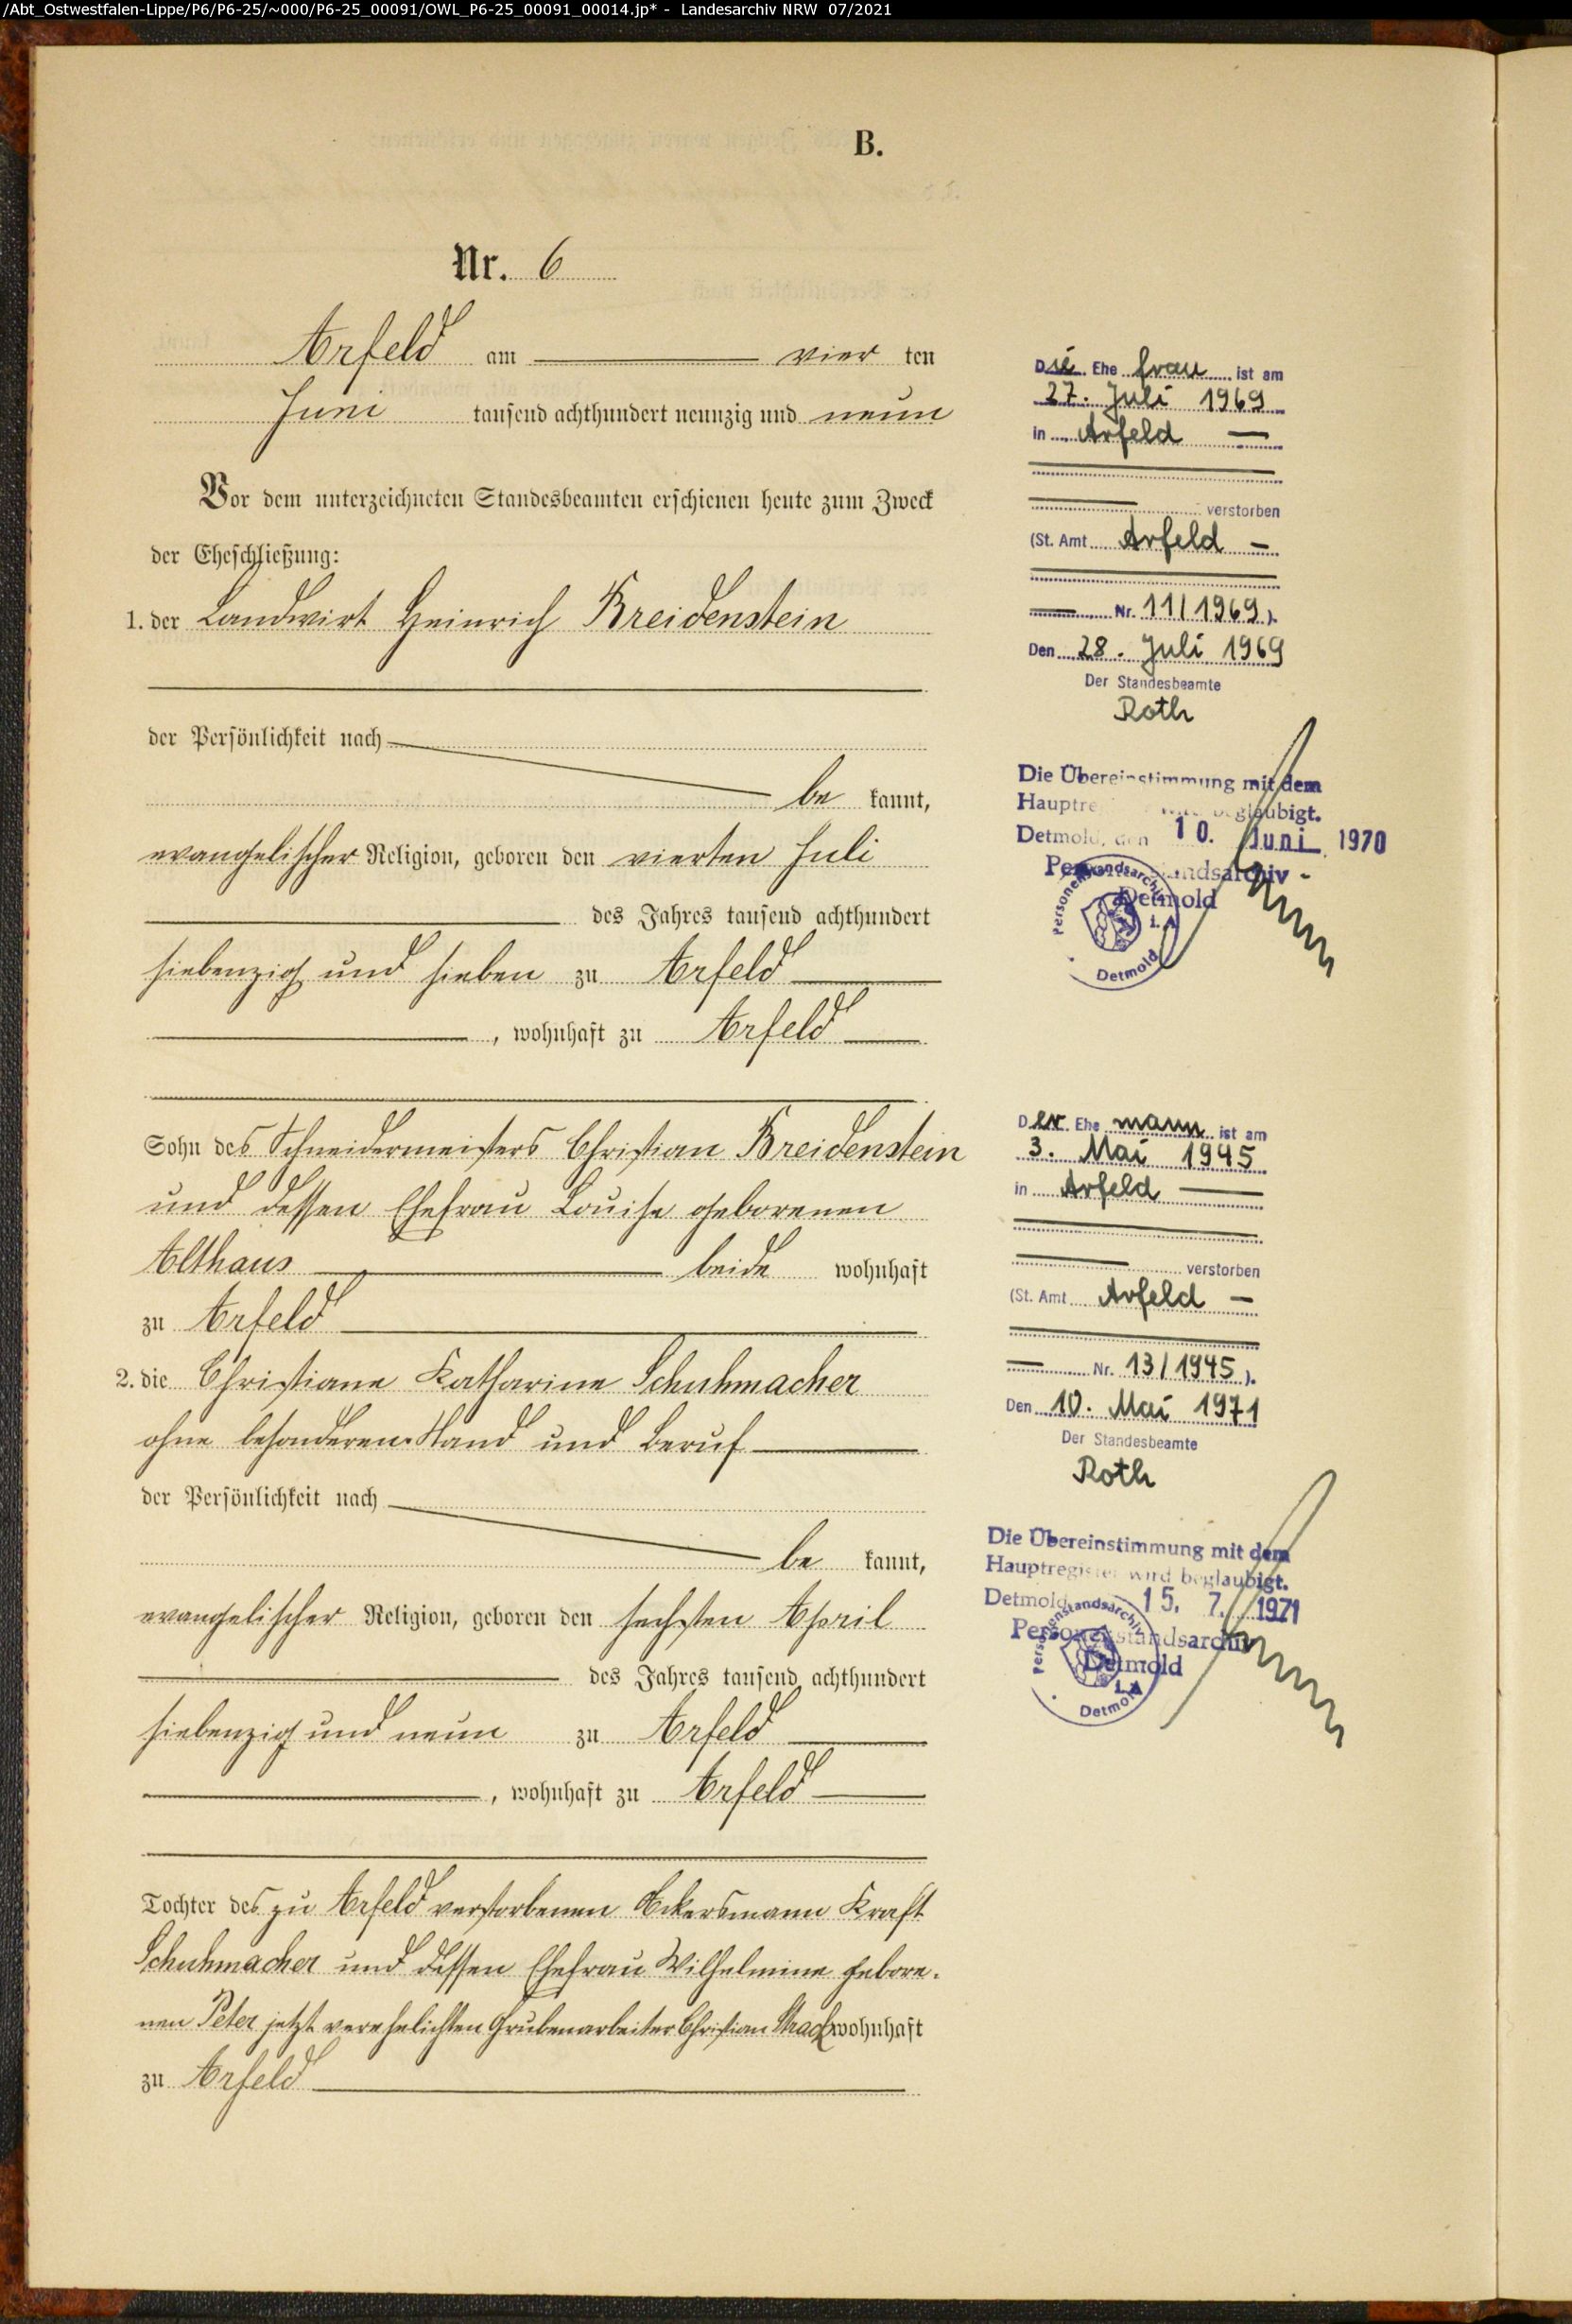 /Abt_Ostwestfalen-Lippe/P6/P6-25/~000/P6-25_00091/OWL_P6-25_00091_00014.jp* - Landesarchiv NRW 07/2021
B.
Nr. 6
Arfeld am vier ten
Juni tausend achthundert neunzig und neun
Vor dem unterzeichneten Standesbeamten erschienen heute zum Zweck
der Eheschließung:
1. der Landwirt Heinrich Breidenstein
der Persönlichkeit nach
be kannt,
evangelischer Religion, geboren den vierten Juli
des Jahres tausend achthundert
siebenzig und sieben zu Arfeld
, wohnhaft zu Arfeld
Sohn des Schneidermeisters Christian Breidenstein
und dessen Ehefrau Louise geborenen
Althaus beide wohnhaft
zu Arfeld
2. die Christiane Katharine Schuhmacher
ohne besonderen Stand und Beruf
der Persönlichkeit nach
be kannt,
evangelischer Religion, geboren den sechsten April
des Jahres tausend achthundert
siebenzig und neun zu Arfeld
, wohnhaft zu Arfeld
Tochter des zu Arfeld verstorbenen Ackersmann Kraft
Schuhmacher und dessen Ehefrau Wilhelmine gebore-
nen Peter jetzt verehelichten Grubenarbeiter Christian Strack wohnhaft
zu Arfeld
Die Ehe frau ist am
27. Juli 1969
in Arfeld
verstorben
(St. Amt Arfeld
Nr. 11/1969).
Den 28. Juli 1969
Der Standesbeamte
Roth
Die Übereinstimmung mit dem
Hauptre beglaubigt.
Detmold, den 10. Juni 1970
Personenstandsarchiv
Detmold
I.A
Personenstandsarchiv
Detmold
Der Ehe mann ist am
3. Mai 1945
in Arfeld
verstorben
(St. Amt Arfeld
Nr. 13/1945).
Den 10. Mai 1971
Der Standesbeamte
Roth
Die Übereinstimmung mit dem
Hauptregister wird beglaubigt.
Detmold 15. 7. 1971
Personenstandsarchiv
Detmold
I.A
Personenstandsarchiv
Detmold